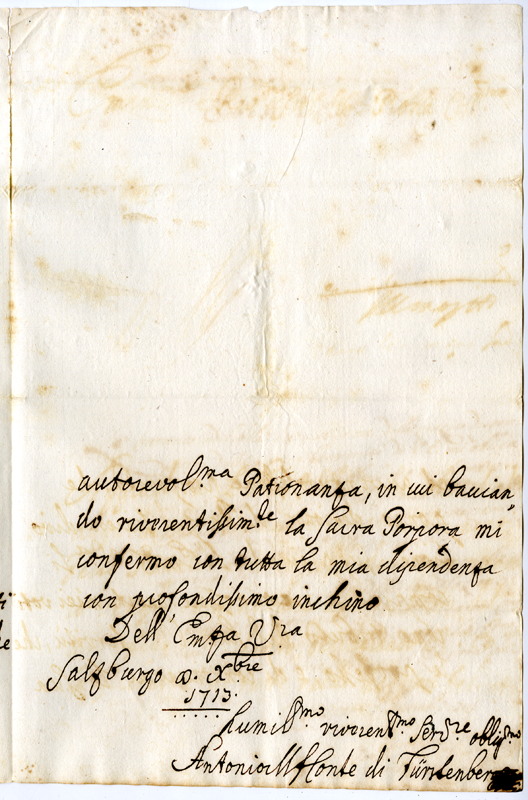 autorevol.ma Patronanza, in cui bacian„
do riverentissim.te la Sacra Porpora mi
confermo con tutta la mia dipendenza
con profondissimo inchino
Dell' Emza Vra
Salzburgo Xbre
1713.
humil.mo riverent.mo Serv.re oblig.mo
Conte di Fürstenberg